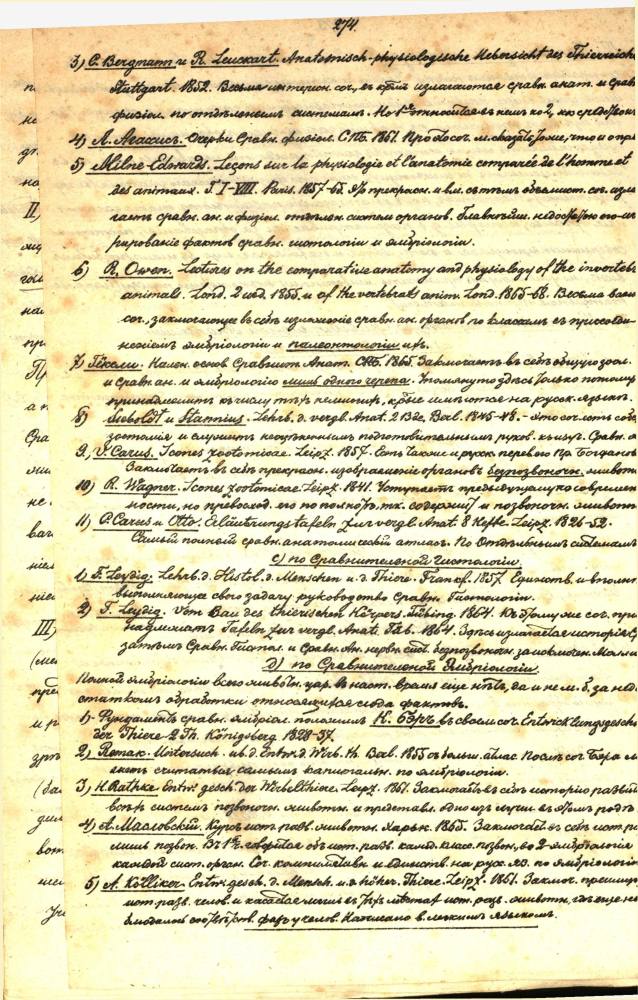 274.
3) C. Bergmann и R. Leuckart. Anatomisch-physiologische Uebersicht des Thierreichs
Stuttgart. 1852. Весьма интересн. соч., въ кᵗᵒᵐ излагаются сравн. анат. и срав
физіол. по отдѣльнымъ системамъ. Но 1ᵃᵃ относится въ немъ ко 2,
4) Л. Агассисъ. Очерки Сравн. физіол. С.П.Б. 1861. Про то соч. м. сказать
5) Milne-Edwards. Leçons sur la physiologie et l'anatomie comparée de l'homme et
des animaux. T. I-VIII. Paris. 1857-65. Это прекрасн. и вм. съ тѣмъ объемист. соч. изла
гаетъ сравн. ан. и физіол. отдѣльн. систем органовъ. Главнѣйш. недост
рированіе фактовъ сравн. гистологіи и эмбріологіи.
6) R. Owen. Lectures on the comparative anatomy and physiology of the invertebr
animals. Lond. 2 изд. 1855 и of the vertebrats anim. Lond. 1865-68. Весьма важн
соч., заключающее въ себѣ изложеніе сравн. ан. органовъ по классамъ съ присоеди-
неніемъ эмбріологіи и палеонтологіи ихъ.
7) Гексли. Начал. основ. Сравнит. Анат. С.П.Б. 1865. Заключаетъ въ себѣ общую зоол.
и сравн. ан. и эмбріологію лишь одного черепа. Упомянуто здѣсь только потому
принадлежитъ къ числу тѣхъ немногихъ, кᵗᵒрые имѣются на русск. языкѣ.
8) Siebold'т и Stannius. Lehrb. d. vergl. Anat. 2 Bde, Berl. 1845-48. - Это соч. есть собс
зоотомія и служитъ неоцѣненнымъ подготовительнымъ руков. къ изуч. Сравн.
9., V. Carus. Icones zootomicae. Leipz. 1857. Есть также и русск. перевод Пр. Богданов
Заключаетъ въ себѣ прекрасн. изображеніе органовъ безпозвоночн. животн
10) R. Wagner. Icones zootomicae. Leipz. 1841. Уступаетъ предъидущему въ современ
ности, но превосход. его по полнотѣ, т.к. содержитъ и позвоночн. животн
11) C. Carus и Otto. Eläutrungstafeln zur vergl. Anat. 8 Hefte. Leipz. 1826-52.
Самый полный сравн. анатомическій атласъ. По отдѣльнымъ системамъ
c) по Сравнительной Гистологіи.
1) F. Leydig. Lehrb. d. Histol. d. Menschen u. d. Thiere. Frankf. 1857. Единств. и вполнѣ
выполняющее свою задачу руководство Сравн. Гистологіи.
2) F. Leydig. Vom Bau des thierischen Körpers. Tübing. 1864. Къ этому же соч. при
надлежатъ Tafeln zur vergl. Anat. Tüb. 1864. Здѣсь излагается исторія
затѣмъ Сравн. Гистол. и Сравн. Ан. нервн. сист. безпозвоночн. заключен.
d) по Сравнительной Эмбріологіи.
Полной эмбріологіи всего животн. цар. въ наст. время еще нѣтъ, да и не м. б. за нед
статкомъ обработки относящихся сюда фактовъ.
1). Фундаментъ сравн. эмбріол. положилъ К. Бэръ въ своемъ соч. Entwicklungsgesch
der Thiere 2 Th. Königsberg 1828-37.
2) Remak. Untersuch. üb. d. Entw. d. Wirb. th. Berl. 1855 съ больш. атлас. Послѣ соч. Бэра м
жетъ считаться самымъ капитальн. по эмбріологіи.
3) H. Rathke. Entw. gesch. der Wirbelthiere. Leipz. 1861. Заключаетъ въ себѣ исторію развит
всѣхъ системъ позвоночн. животн. и представл. одно изъ лучш. въ этомъ родѣ
4) А. Масловскій. Курсъ ист. разв. животн. Харьк. 1865. Заключаетъ въ себѣ ист. ра
лишь позвон. Въ 1й говорится объ ист. разв. кажд. класс. позвон., во 2й эмбріологія
каждой сист. орган. Соч. компилятивн. и единств. на русс. яз. по эмбріологіи
5) A. Kölliker. Entw. gesch. d. Mensch. u. d. höher. Thiere. Leipz. 1861. Заключ. преимущ
ист. разв. челов. и касается лишь въ тѣхъ мѣстахъ ист. разв. животн., гдѣ еще не
блюдались соотвѣтств. фазы у челов. Написано в. легкимъ языкомъ.